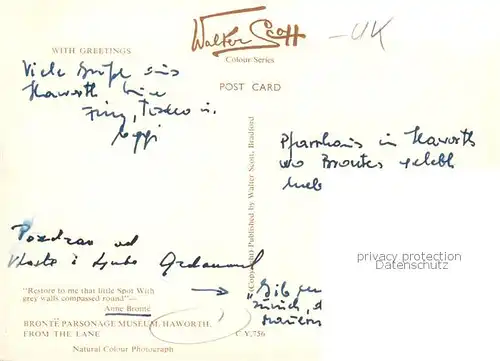 Walter Scott
- UK
Colour Series
WITH GREETINGS
POST CARD
Viele Grüße aus
Haworth
Pfarrhaus in Haworth
wo Brontes gelebt
(Copyright) Published by Walter Scott, Bradford
Pozdrav od
Vlaste i Ljube
privacy protection
Datenschutz
"Restore to me that little Spot With
grey walls compassed round"—
Anne Brontë
→ "Gib
zurück,
BRONTË PARSONAGE MUSEUM, HAWORTH,
FROM THE LANE
C Y.756
Natural Colour Photograph